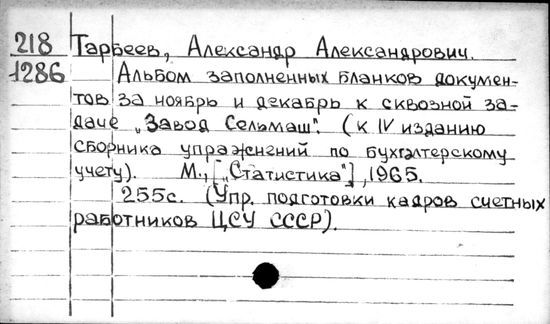 218 Тарбеев, Александр Александрович.
1286 Альбом заполненных бланков докумен-
тов за ноябрь и декабрь к сквозной за-
даче „Завод Сельмаш“. (к IV изданию
сборника упражнений по бухгалтерскому
учету). М., [„Статистика“], 1965.
255с. (Упр. подготовки кадров счетных
работников ЦСУ СССР).